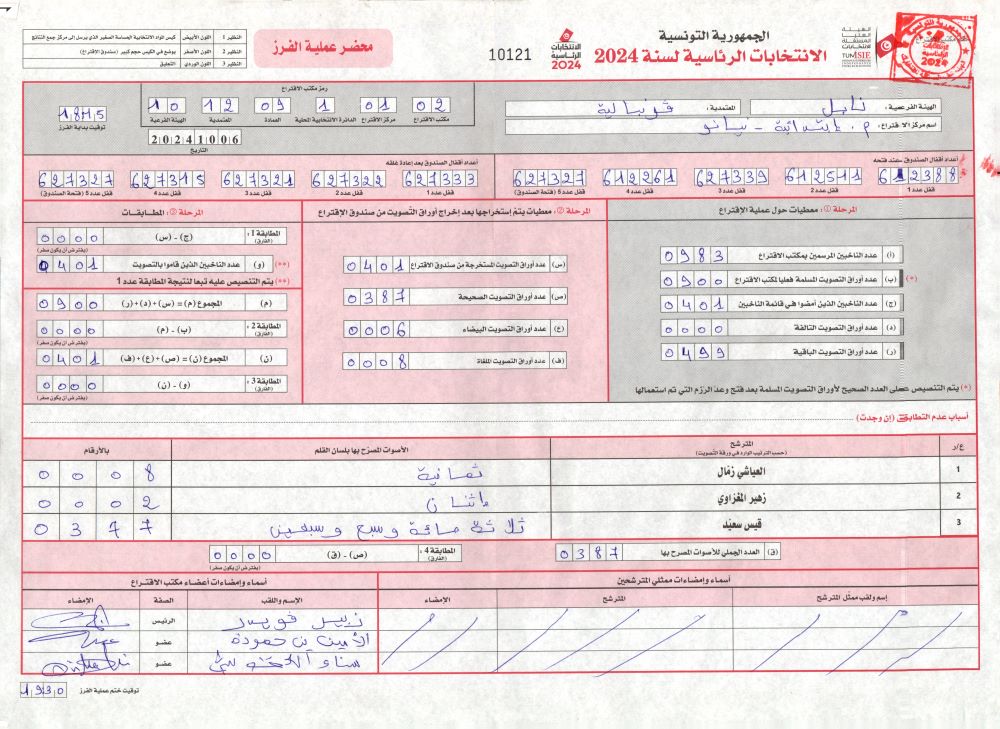 الجمهورية التونسية
الانتخابات الرئاسية لسنة 2024
الهيئة العليا المستقلة للانتخابات
الانتخابات الرئاسية 2024
10121
محضر عملية الفرز
النظير 1 اللون الأبيض كيس المواد الانتخابية الحساسة الصغير الذي يرسل إلى مركز جمع النتائج
النظير 2 اللون الأصفر يوضع في الكيس حجم كبير (صندوق الإقتراع)
النظير 3 اللون الوردي التعليق
الهيئة الفرعية: نابل المعتمدية: قرنبالية
اسم مركز الاقتراع: م. ابتدائية - نيانو
رمز مكتب الاقتراع
02 01 1 09 12 10
مكتب الاقتراع مركز الاقتراع الدائرة الانتخابية المحلية العمادة المعتمدية الهيئة الفرعية
20241006
التاريخ
18H15
توقيت بداية الفرز
أعداد أقفال الصندوق عند فتحه
612388 612511 627339 612261 627327
قفل عدد 1 قفل عدد 2 قفل عدد 3 قفل عدد 4 قفل عدد 5 (فتحة الصندوق)
أعداد أقفال الصندوق بعد إعادة غلقه
627333 627322 627321 627315 627327
قفل عدد 1 قفل عدد 2 قفل عدد 3 قفل عدد 4 قفل عدد 5 (فتحة الصندوق)
المرحلة ①: معطيات حول عملية الإقتراع
(أ) عدد الناخبين المرسمين بمكتب الاقتراع 0983
(*) (ب) عدد أوراق التصويت المسلمة فعليا لمكتب الاقتراع 0900
(ج) عدد الناخبين الذين أمضوا في قائمة الناخبين 0401
(د) عدد أوراق التصويت التالفة 0000
(ر) عدد أوراق التصويت الباقية 0499
(*) يتم التنصيص على العدد الصحيح لأوراق التصويت المسلمة بعد فتح وعد الرزم التي تم استعمالها
المرحلة ②: معطيات يتم إستخراجها بعد إخراج أوراق التصويت من صندوق الإقتراع
(س) عدد أوراق التصويت المستخرجة من صندوق الاقتراع 0401
(ص) عدد أوراق التصويت الصحيحة 0387
(ع) عدد أوراق التصويت البيضاء 0006
(ف) عدد أوراق التصويت الملغاة 0008
المرحلة ③: المطابقات
المطابقة 1: (الفارق) (ج) - (س) 0000
(يفترض أن يكون صفر)
(**) (و) عدد الناخبين الذين قاموا بالتصويت 0401
(**) يتم التنصيص عليه تبعا لنتيجة المطابقة عدد 1
(م) المجموع (م) = (س) + (د) + (ر) 0900
المطابقة 2: (الفارق) (ب) - (م) 0000
(يفترض أن يكون صفر)
(ن) المجموع (ن) = (ص) + (ع) + (ف) 0401
المطابقة 3: (الفارق) (و) - (ن) 0000
(يفترض أن يكون صفر)
أسباب عدم التطابق (إن وجدت)
ع/ر المترشح (حسب الترتيب الوارد في ورقة التصويت) الأصوات المصرح بها بلسان القلم بالأرقام
1 العياشي زمّال ثمانية 0008
2 زهير المغزاوي إثنان 0002
3 قيس سعيّد ثلاثة مائة وسبع وسبعين 0377
(ق) العدد الجملي للأصوات المصرح بها 0387
المطابقة 4: (الفارق) (ص) - (ق) 0000
(يفترض أن يكون صفر)
أسماء وإمضاءات ممثلي المترشحين
إسم ولقب ممثل المترشح المترشح الإمضاء
أسماء وإمضاءات أعضاء مكتب الاقتراع
الإسم واللقب الصفة الإمضاء
الرئيس
الأمين بن حمودة عضو
سناء عضو
توقيت ختم عملية الفرز 1930